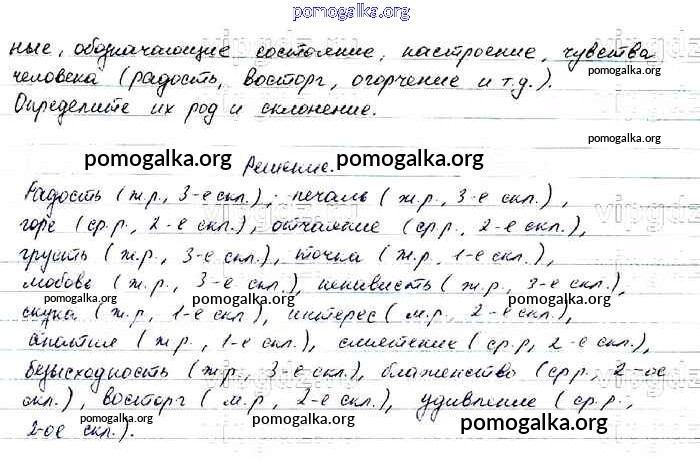 pomogalka.org
ные, обозначающие состояние, настроение, чувства
человека (радость, восторг, огорчение и т.д.).
pomogalka.org
Определите их род и склонение.
pomogalka.org
pomogalka.org Решение. pomogalka.org
Радость (ж.р., 3-е скл.), печаль (ж.р., 3-е скл.),
горе (ср.р., 2-е скл.), отчаяние (ср.р., 2-е скл.),
грусть (ж.р., 3-е скл.), тоска (ж.р., 1-е скл.),
любовь (ж.р., 3-е скл.), ненависть (ж.р., 3-е скл.),
pomogalka.org pomogalka.org pomogalka.org
скука (ж.р., 1-е скл.), интерес (м.р., 2-е скл.),
апатия (ж.р., 1-е скл.), смятение (ср.р., 2-е скл.),
безысходность (ж.р., 3-е скл.), блаженство (ср.р., 2-ое
скл.), восторг (м.р., 2-е скл.), удивление (ср.р.,
2-ое скл.).
pomogalka.org pomogalka.org pomogalka.org